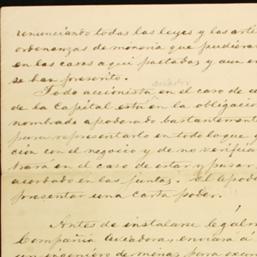 renunciando todas las leyes y las arti
ordenanzas de mineria que pudieran
en los casos aqui pactados y aun en
se han prescrito.
Todo accionista en el caso de
de la Capital está en la obligacion
nombrado apoderado bastantemente
para representarlo en todo lo que
cion con el negocio y de no verificar
trará en el caso de estar y pasar
acordado en las juntas. El apode
presentar una carta poder.
Antes de instalarse legalm
Compañia aviadora enviará á
un ingeniero de minas para